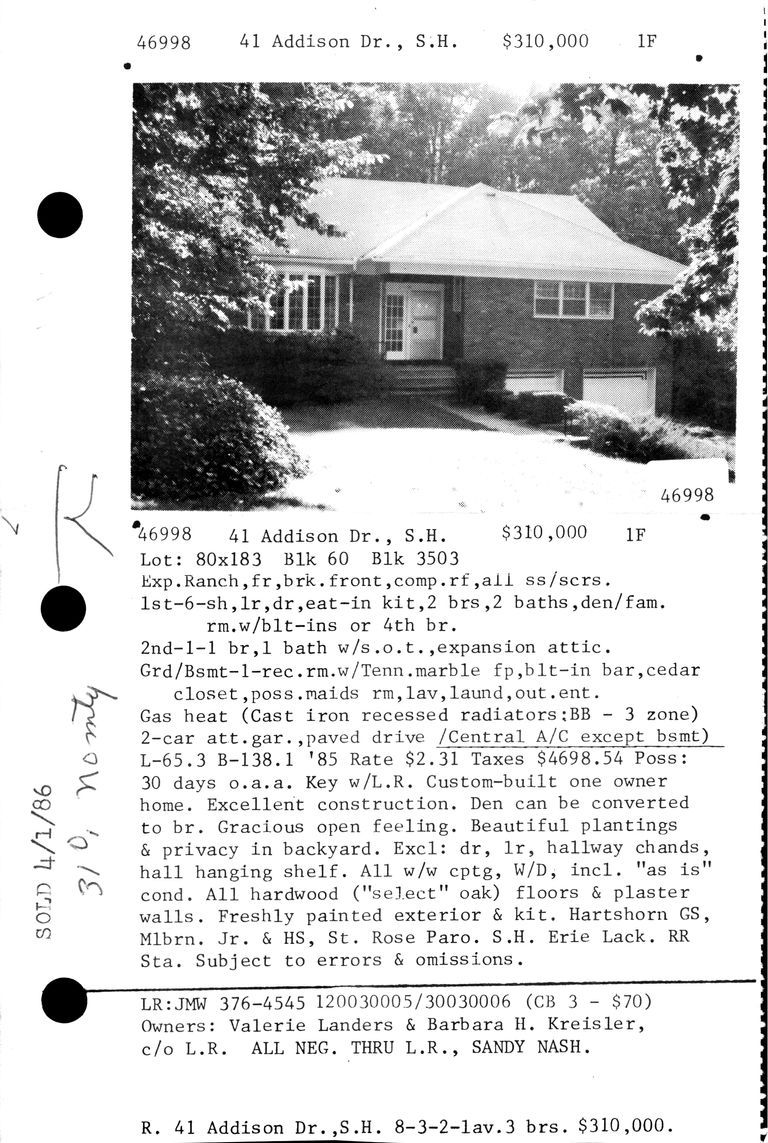 46998 41 Addison Dr., S.H. $310,000 1F
46998
46998 41 Addison Dr., S.H. $310,000 1F
Lot: 80x183 Blk 60 Blk 3503
Exp.Ranch,fr,brk.front,comp.rf,all ss/scrs.
1st-6-sh,lr,dr,eat-in kit,2 brs,2 baths,den/fam.
rm.w/blt-ins or 4th br.
2nd-1-1 br,1 bath w/s.o.t.,expansion attic.
Grd/Bsmt-1-rec.rm.w/Tenn.marble fp,blt-in bar,cedar
closet,poss.maids rm,lav,laund,out.ent.
Gas heat (Cast iron recessed radiators:BB - 3 zone)
2-car att.gar.,paved drive /Central A/C except bsmt)
L-65.3 B-138.1 '85 Rate $2.31 Taxes $4698.54 Poss:
30 days o.a.a. Key w/L.R. Custom-built one owner
home. Excellent construction. Den can be converted
to br. Gracious open feeling. Beautiful plantings
& privacy in backyard. Excl: dr, lr, hallway chands,
hall hanging shelf. All w/w cptg, W/D, incl. "as is"
cond. All hardwood ("select" oak) floors & plaster
walls. Freshly painted exterior & kit. Hartshorn GS,
Mlbrn. Jr. & HS, St. Rose Paro. S.H. Erie Lack. RR
Sta. Subject to errors & omissions.
LR:JMW 376-4545 120030005/30030006 (CB 3 - $70)
Owners: Valerie Landers & Barbara H. Kreisler,
c/o L.R. ALL NEG. THRU L.R., SANDY NASH.
R. 41 Addison Dr.,S.H. 8-3-2-1av.3 brs. $310,000.
SOLD 4/1/86
310,